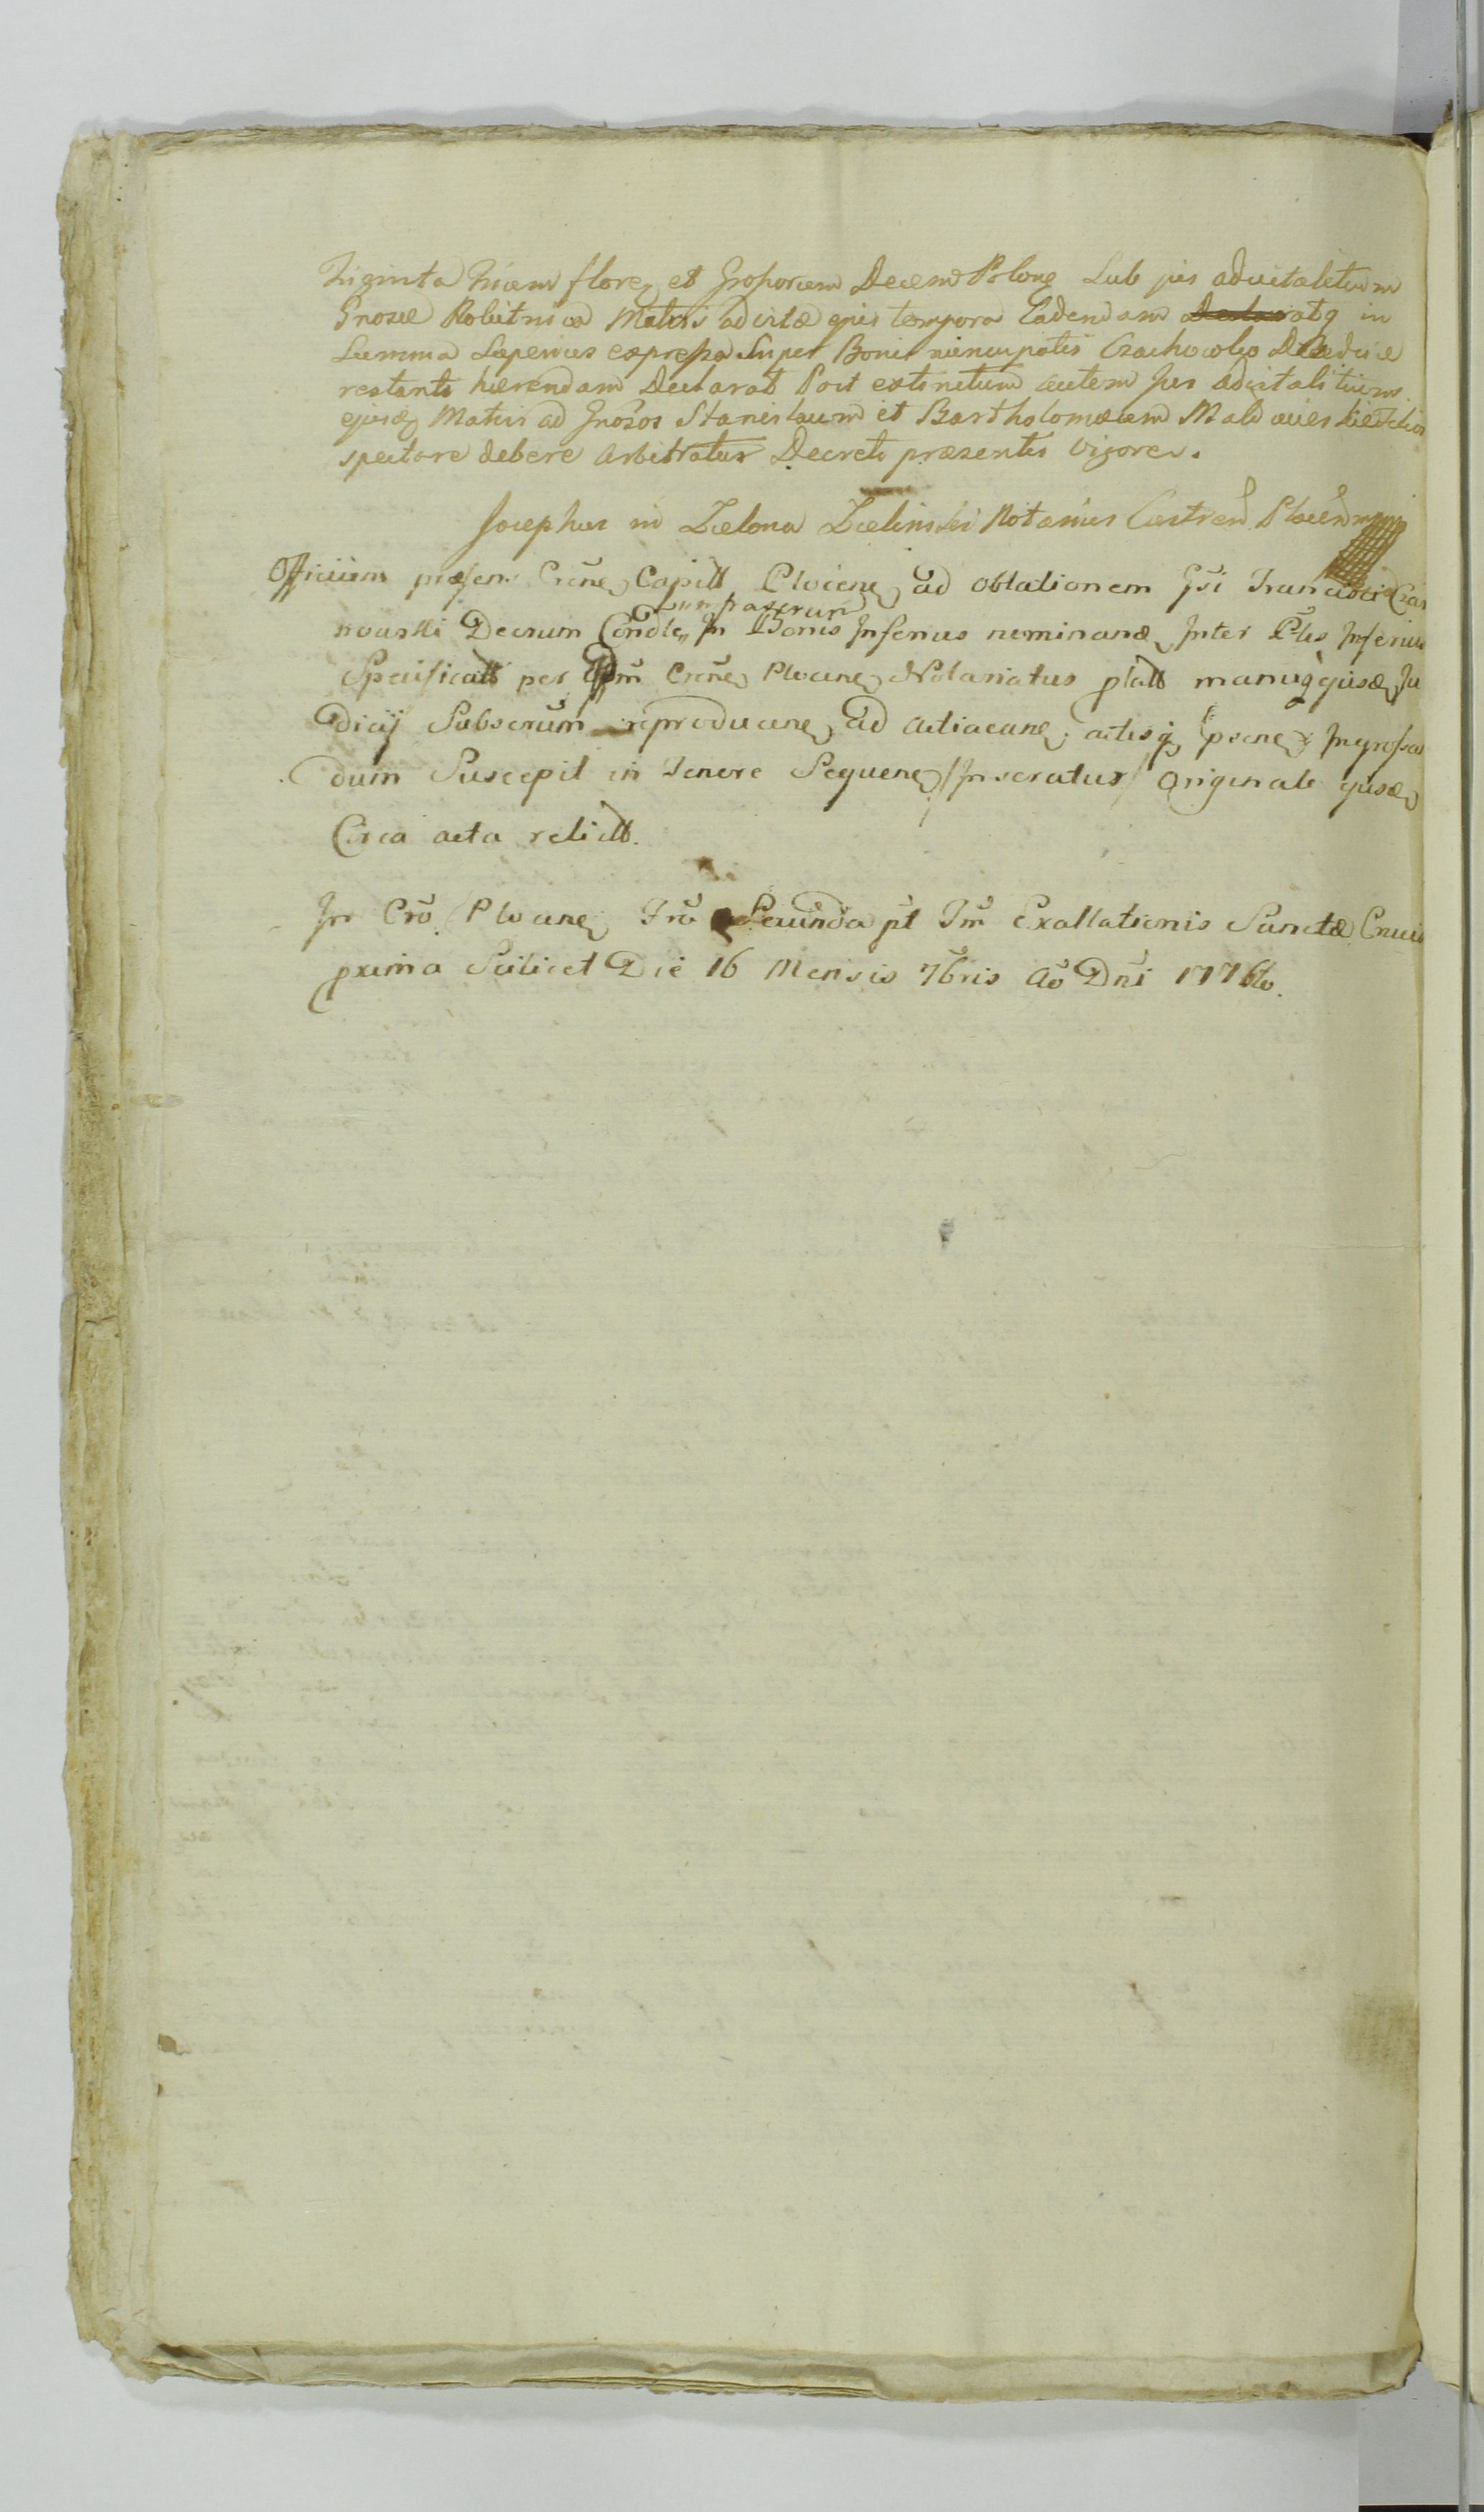 Triginta Trium floren et Grossorum Decem Polone Sub jus advitalitium
Gnosæ Robitnica Matris ad vitæ ejus tempora Cadendam atq in
Summa Superius expressa Super Bonis nuncupatis Czachowko
restanti hærendam Declarat Post extinctum autem Jus advitalitium
ejusd Matris ad Gnosos Stanislaum et Bartholomæum
spectare debere Arbitratur Decreti præsentis vigore.
Josephus in Zielona Zielinski Notarius Castren Plocen
Officium præsens Crēne Capitt Plocene ad oblationem Gsi Francisci Czar
nowski Decrum Condle in Bonis Inferius nominand Inter Ptes Inferius
Specificatt per Crēne Plocene Notariatus manuq ejusd Ju
dicij Subscrum reproducene ad acticane actisq Ingrossan
dum Suscepit in Tenore Sequene /Inseratur/ Originale ejusd
Circa acta relictt.
In Crō Plocene Frā Secunda pt Fm Exaltationis Sanctæ Crucis
prxima Scilicet Die 16 Mensis 7bris Aō Dni 1776to.